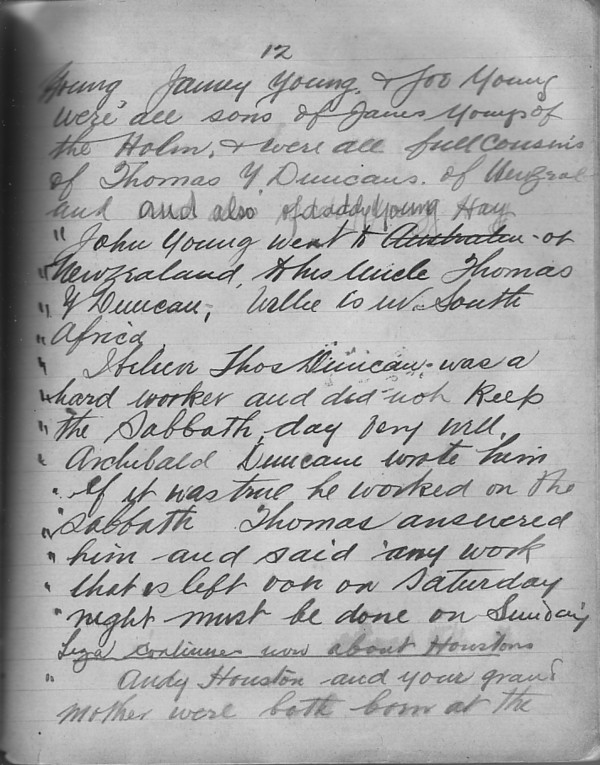 12
Young Jamey Young. & Joo Young
were all sons of James Youngs of
the Holm. & were all full Cousins
of Thomas Y Duncans. of
and and also of daddy Young Hay
" John Young went to Australia - or
" New Zealand, to his Uncle Thomas
" Y Duncan, Willie is in South
" Africa
" I believe Thos Duncan - was a
" hard worker and did not keep
" the Sabbath day very well.
" Archibald Duncan wrote him
" if it was true he worked on the
" Sabbath Thomas answered
" him and said any work
" that is left on Saturday
" night must be done on Sunday
continues now about Houstons
" Andy Houston and your grand
mother were both born at the